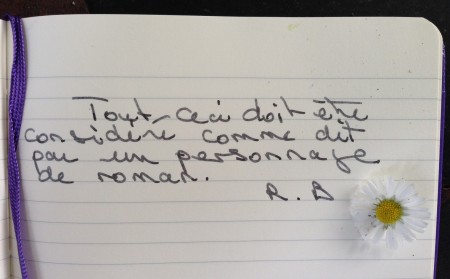 Tout ceci doit être
considéré comme dit
par un personnage
de roman.
R. B